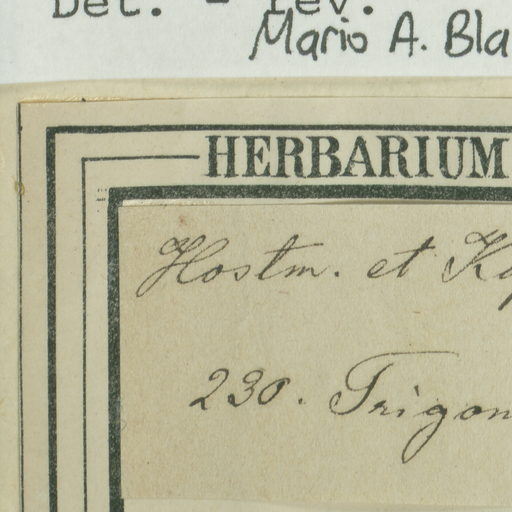 Det. - rev.
Mario A. Bla
HERBARIUM
Hostm. et K
230. Trigon